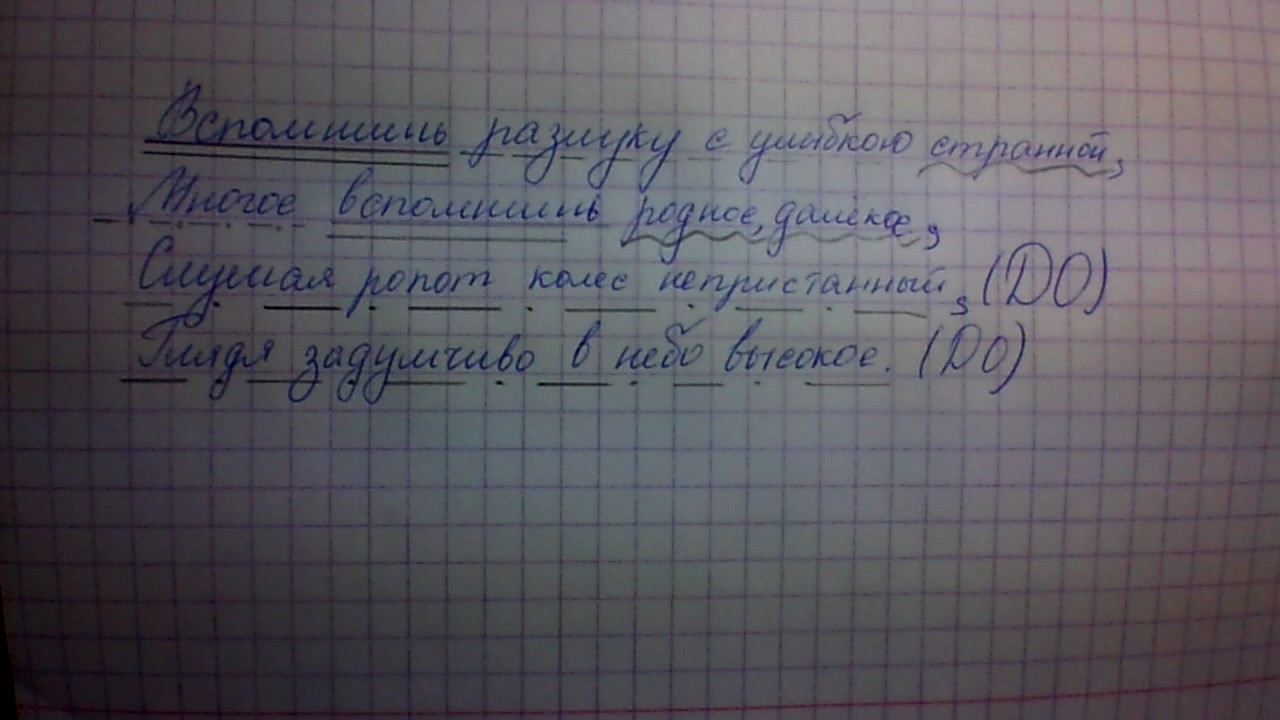 Вспомнишь разлуку с улыбкою странной,
Многое вспомнишь родное, далёкое,
Слушая ропот колес непристанный, (ДО)
Глядя задумчиво в небо высокое. (ДО)